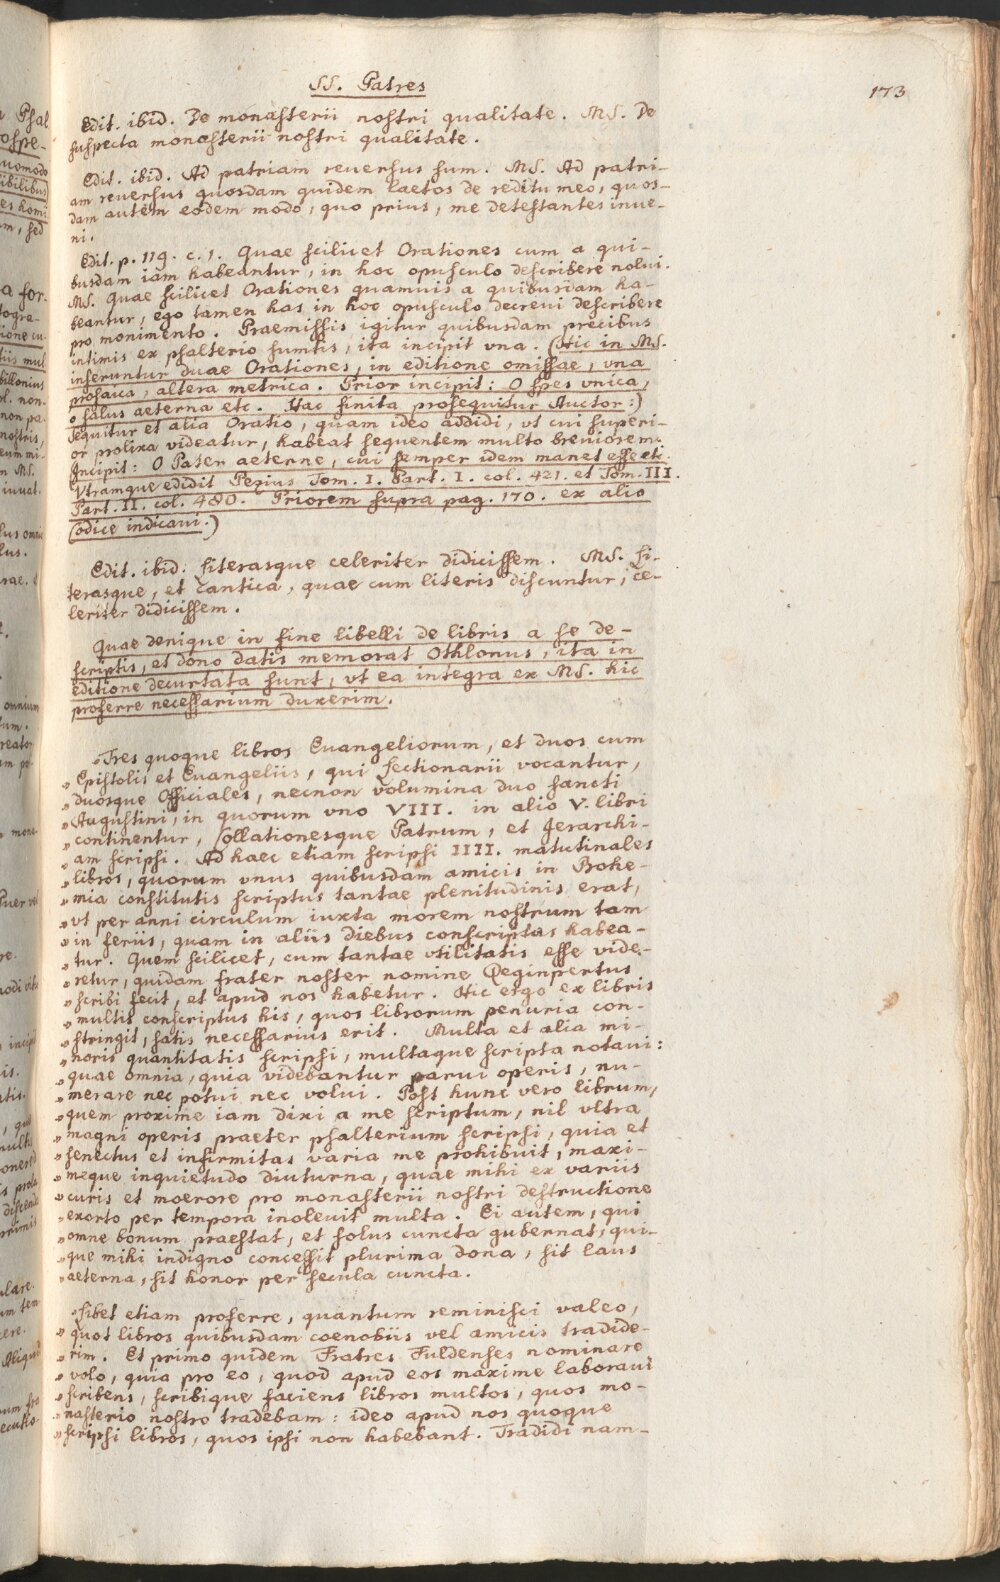 SS. Patres
173
Edit. ibid. De monasterii nostri qualitate. MS. De
suspecta monasterii nostri qualitate.
Edit. ibid. Ad patriam reversus sum. MS. Ad patri-
am reuersus quosdam quidem laetos de reditu meo, quos-
dam autem eodem modo, quo prius, me detestantes inue-
ni.
Edit. p. 119. c. 1. Quae scilicet Orationes cum a qui-
busdam iam habeantur, in hoc opusculo describere nolui.
MS. Quae scilicet Orationes quamuis a quibusdam ha-
beantur, ego tamen has in hoc opusculo decreui describere
pro monimento. Praemissis igitur quibusdam precibus
intimis ex psalterio sumtis, ita incipit vna. (Hic in MS.
inseruntur duae Orationes, in editione omissae, vna
prosaica, altera metrica. Prior incipit: O spes vnica,
o salus aeterna etc. Hac finita prosequitur Auctor:)
Sequitur et alia Oratio, quam ideo addidi, vt cui superi-
or prolixa videatur, habeat sequentem multo breuiorem.
Incipit: O Pater aeterne, cui semper idem manet esse etc.
Vtramque edidit Pezius Tom. I. Part. I. col. 421. et Tom. III.
Part. II. col. 480. Priorem supra pag. 170. ex alio
Codice indicaui.)
Edit. ibid. Literasque celeriter didicissem. MS. Li-
terasque, et Cantica, quae cum literis discuntur, ce-
leriter didicissem.
Quae denique in fine libelli de libris a se de-
scriptis, et dono datis memorat Othlonus, ita in
editione decurtata sunt, vt ea integra ex MS. hic
proferre necessarium duxerim.
„Tres quoque libros Euangeliorum, et duos cum
„Epistolis et Euangeliis, qui Lectionarii vocantur,
„duosque Officiales, necnon volumina duo sancti
„Augustini, in quorum vno VIII. in alio V. libri
„continentur, Collationesque Patrum, et Jerarchi-
„am scripsi. Ad haec etiam scripsi IIII. matutinales
„libros, quorum vnus quibusdam amicis in Bohe-
„mia constitutis scriptus tantae plenitudinis erat,
„vt per anni circulum iuxta morem nostrum tam
„in feriis, quam in aliis diebus conscriptus habea-
„tur. Quem scilicet, cum tantae vtilitatis esse vide-
„retur, quidam frater noster nomine Reginpertus
„scribi fecit, et apud nos habetur. Hic ergo ex libris
„multis conscriptus his, quos librorum penuria con-
„stringit, satis necessarius erit. Multa et alia mi-
„noris quantitatis scripsi, multaque scripta notaui:
„quae omnia, quia videbantur parui operis, nu-
„merare nec potui nec volui. Post hunc vero librum,
„quem proxime iam dixi a me scriptum, nil vltra
„magni operis praeter psalterium scripsi, quia et
„senectus et infirmitas varia me prohibuit, maxi-
„meque inquietudo diuturna, quae mihi ex variis
„curis et moerore pro monasterii nostri destructione
„exorto per tempora inoleuit multa. Ei autem, qui
„omne bonum praestat, et solus cuncta gubernat, qui-
„que mihi indigno concessit plurima dona, sit laus
„aeterna, sit honor per secula cuncta.
„Libet etiam proferre, quantum reminisci valeo,
„quot libros quibusdam coenobiis vel amicis tradide-
„rim. Et primo quidem Fratres Fuldenses nominare
„volo, quia pro eo, quod apud eos maxime laboraui
„scribens, scribique faciens libros multos, quos mo-
„nasterio nostro tradebam: ideo apud nos quoque
„scripsi libros, quos ipsi non habebant. Tradidi nam-